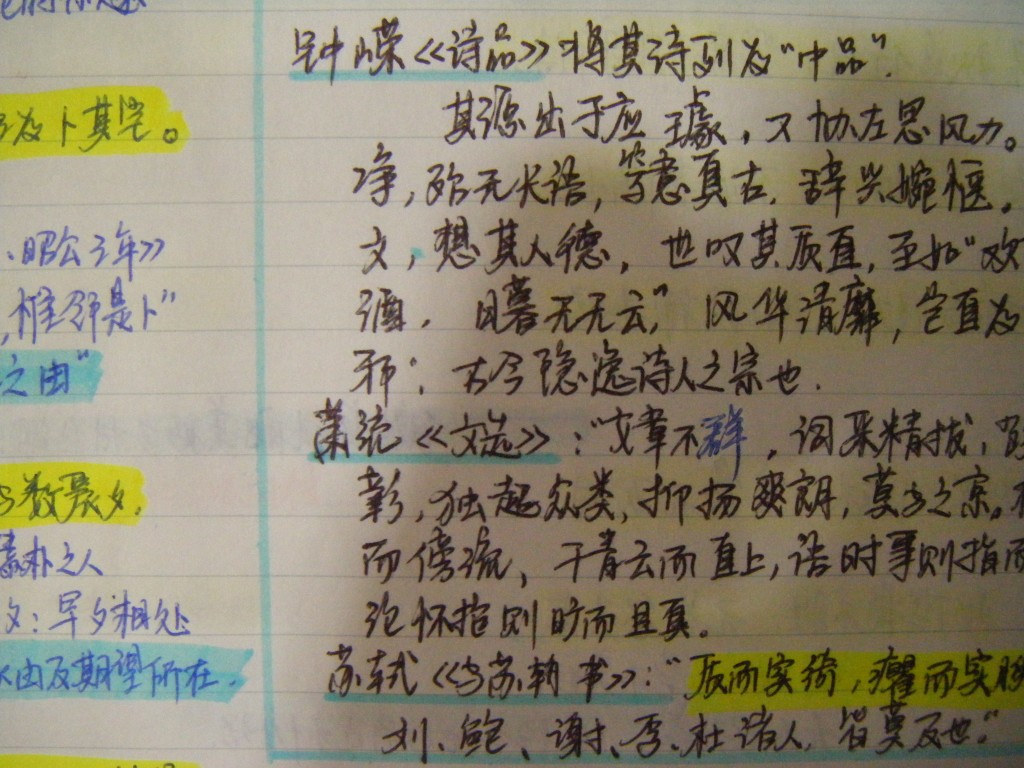 为卜其宅。
、昭公三年》
，惟邻是卜"
之由"
与数晨夕，
素朴之人
夕：早夕相处
由及期望所在，
钟嵘《诗品》将其诗列为"中品"．
其源出于应璩，又协左思风力。
净，殆无长语，笃意真古，辞兴婉惬。
文，想其人德，世叹其质直，至如"欢
酒，日暮天无云，"风华清靡，岂直为
邪；古今隐逸诗人之宗也．
萧统《文选》："文章不群，词采精拔，
彰，独超众类，抑扬爽朗，莫与之京。
而傍流，干青云而直上，语时事则指而
论怀抱则旷而且真。
苏轼《与苏辙书》："质而实绮，癯而实腴
刘、鲍、谢、李、杜诸人，皆莫及也。"